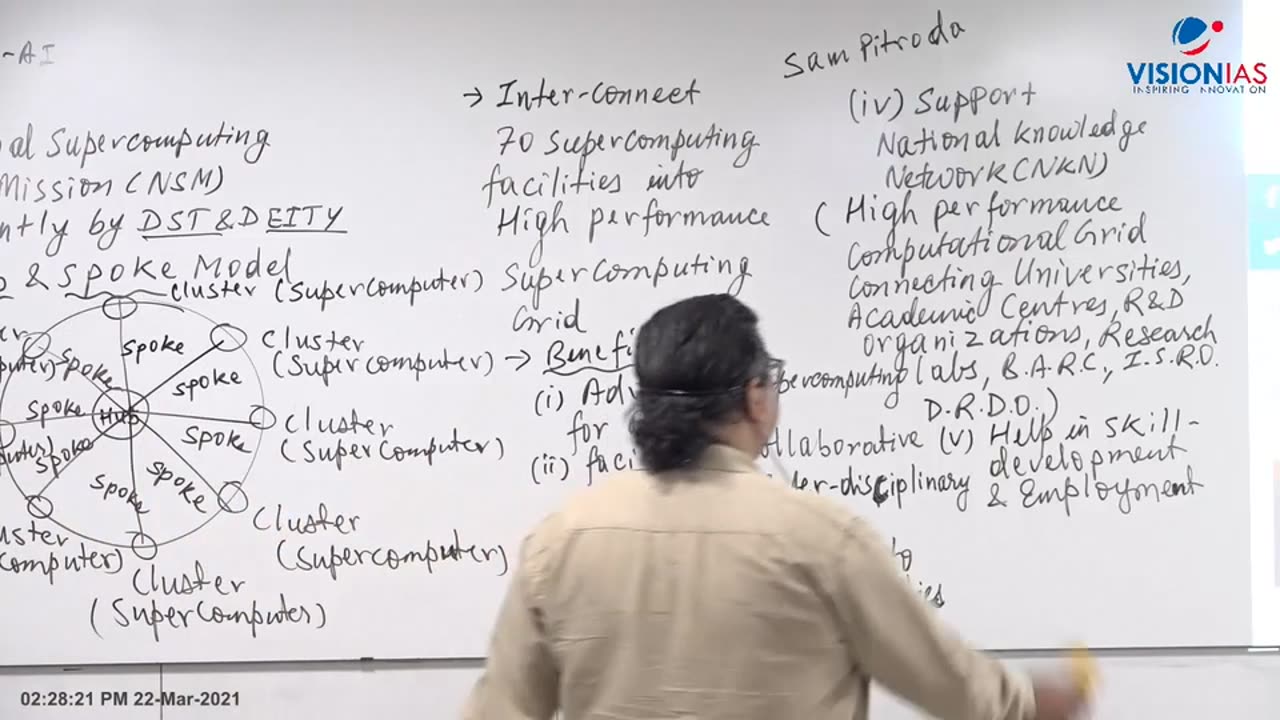 -AI
al Supercomputing
Mission (NSM)
ntly by DST & DEITY
& Spoke Model
cluster (Supercomputer)
Spoke
Cluster
(Supercomputer)
Spoke
Spoke
Spoke
Hub
Cluster
(Supercomputer)
Spoke
Spoke
Spoke
Spoke
Cluster
(Supercomputer)
Cluster
(Supercomputer)
→ Inter-connect
70 Supercomputing
facilities into
High performance
Supercomputing
Grid
→ Benefi
(i) Adv
for
(ii) faci
percomputing
ollaborative
er-disciplinary
Sam Pitroda
(iv) Support
National knowledge
Network (NKN)
(High performance
Computational Grid
Connecting Universities,
Academic Centres, R&D
organizations, Research
labs, B.A.R.C., I.S.R.O.
D.R.D.O.)
(v) Help in skill-
development
& Employment
VISIONIAS
INSPIRING INNOVATION
02:28:21 PM 22-Mar-2021